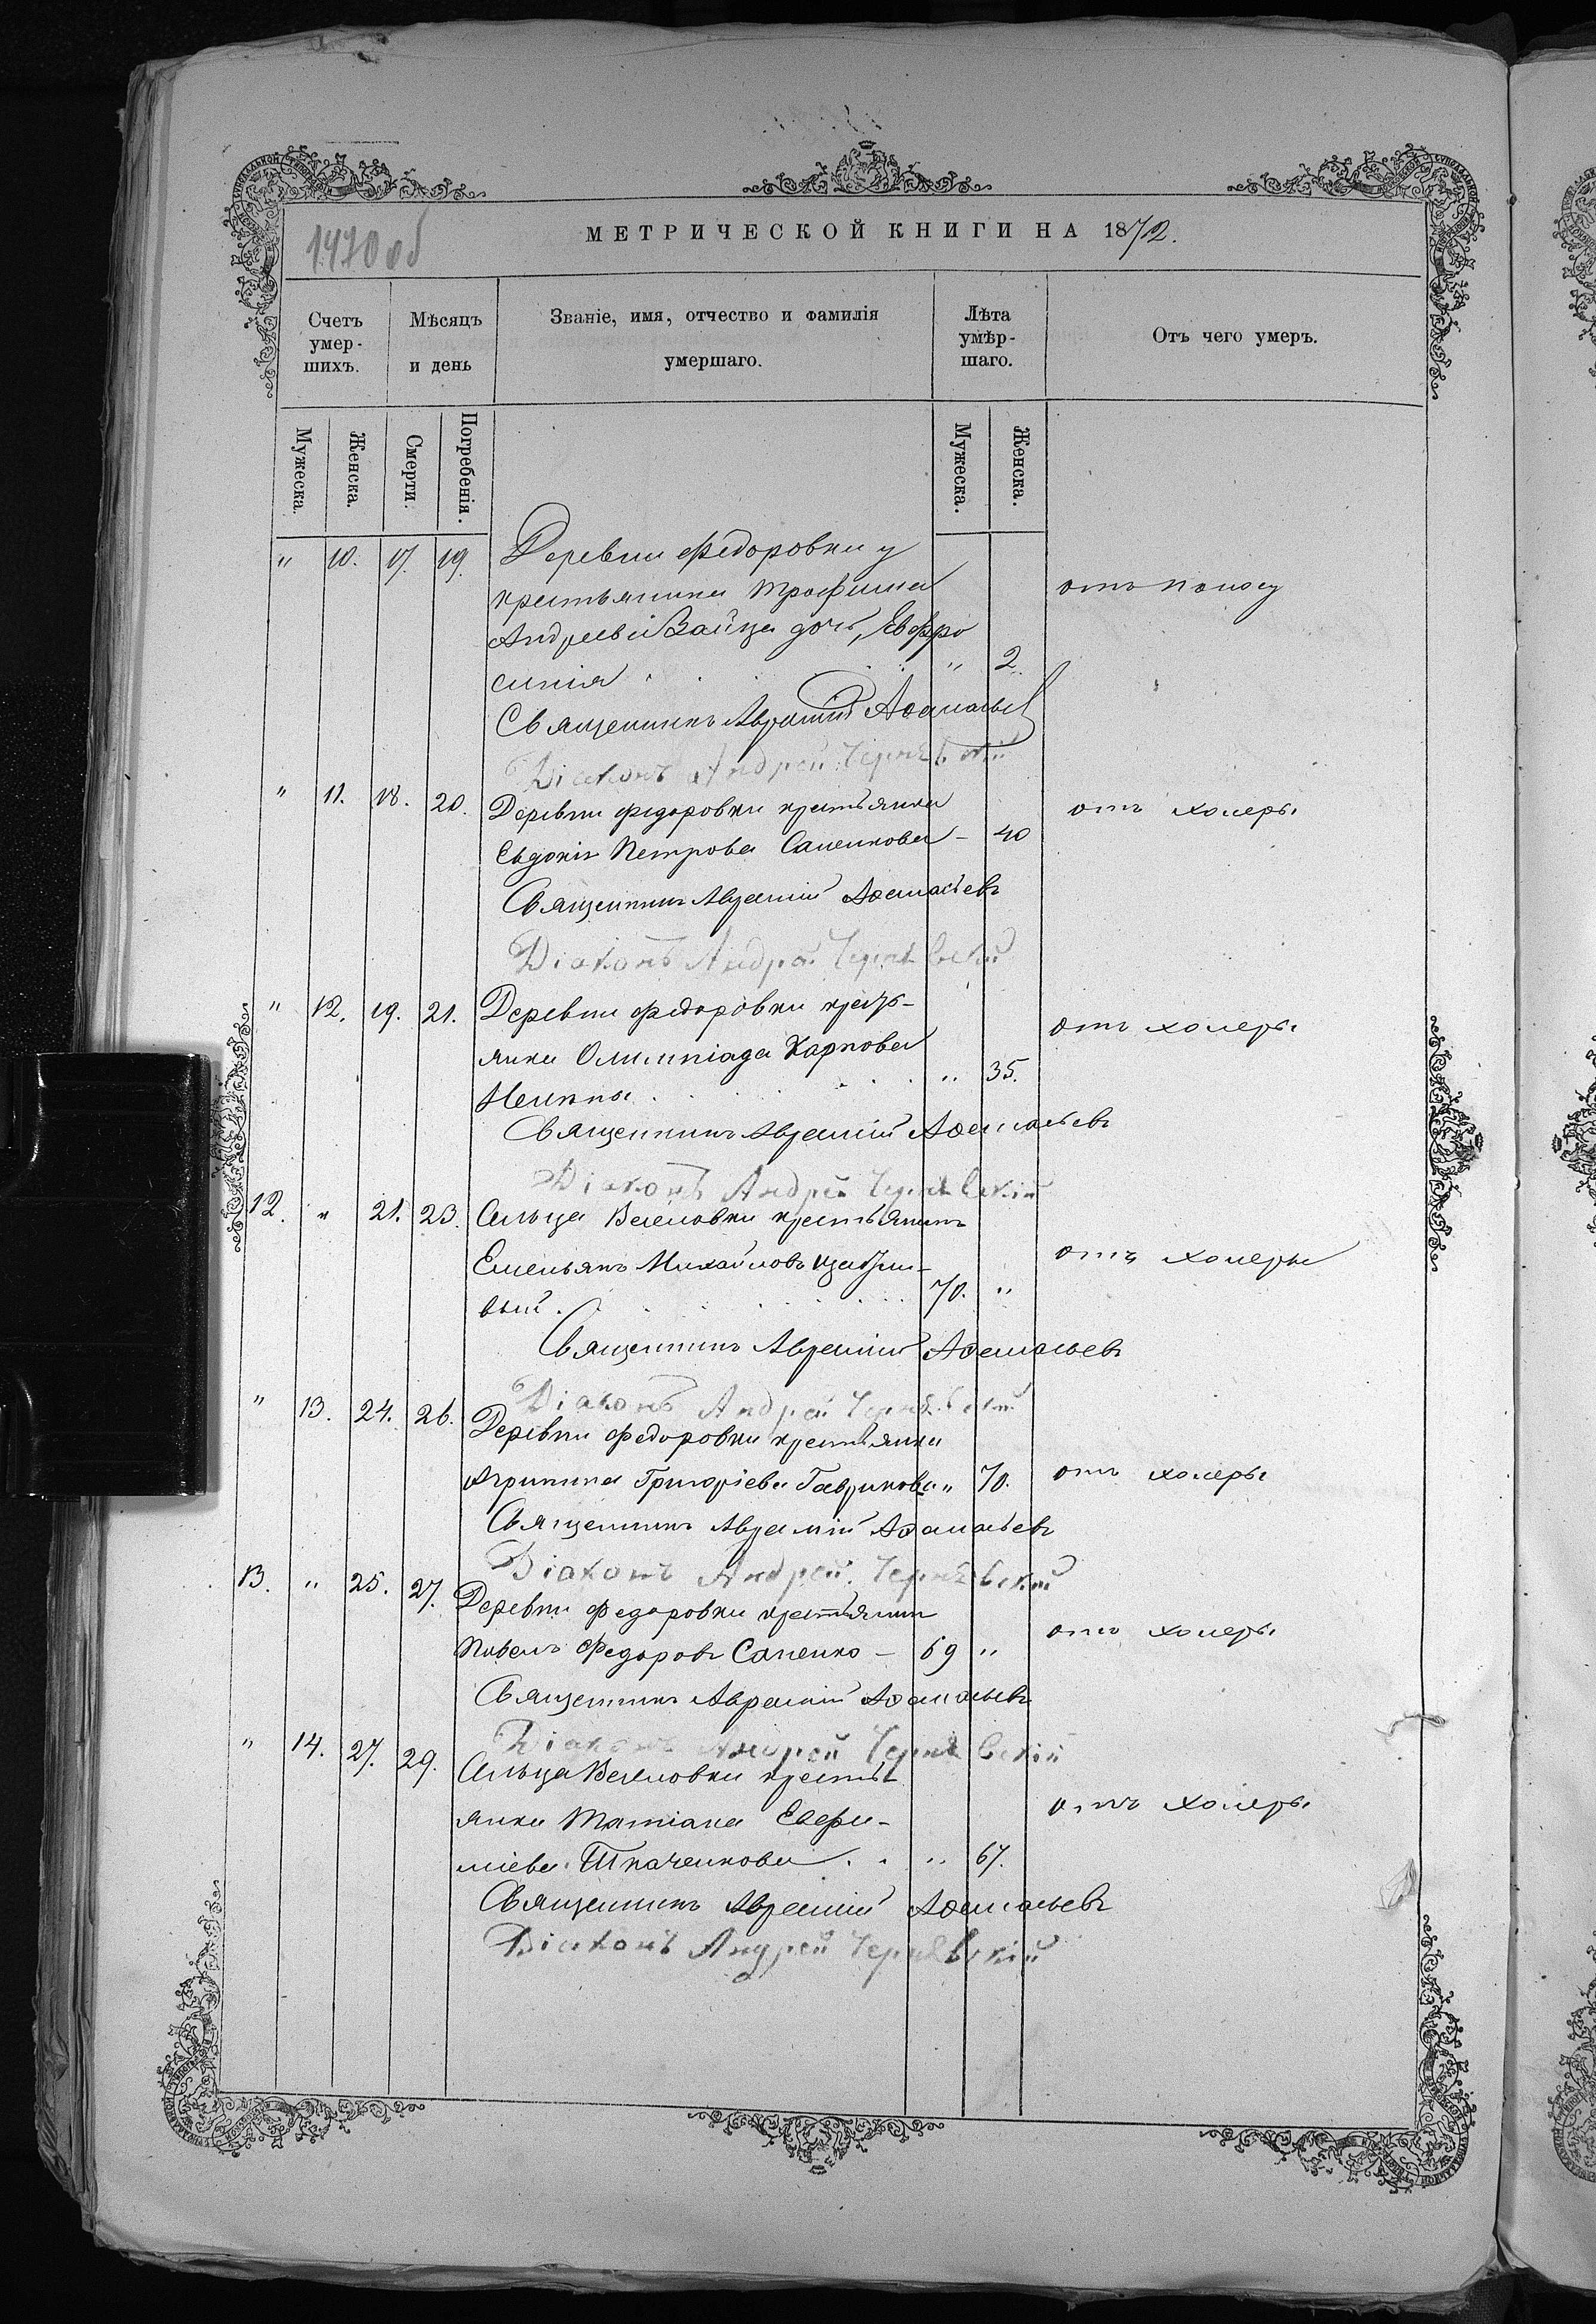 1470 об
МЕТРИЧЕСКОЙ КНИГИ НА 1872.
Счетъ умер-шихъ.
Мѣсяцъ и день
Званіе, имя, отчество и фамилія умершаго.
Лѣта умѣр-шаго.
Отъ чего умеръ.
Мужеска.
Женска.
Смерти.
Погребенія.
Мужеска.
Женска.
" 10. 17. 19. Деревни Федоровки у
крестьянина Трофима отъ поносу
Андреева Зайца дочь, Евфро
синія " 2.
Священникъ Авраамій Аѳанасьев
Діаконъ Андрей Чернявскій
" 11. 18. 20. Деревни Федоровки крестьянка отъ холеры
Евдокія Петрова Сапенкова - 40
Священникъ Авраамій Аѳанасьевъ
Діаконъ Андрей Чернявскій
" 12. 19. 21. Деревни Федоровки кресть- отъ холеры
янка Олимпіада Карпова
" 35.
Священникъ Авраамій Аѳанасьевъ
Діаконъ Андрей Чернявскій
12. " 21. 23. Сельца Веселовки крестьянинъ
Емельянъ Михайловъ отъ холеры
вый 70. "
Священникъ Авраамій Аѳанасьевъ
Діаконъ Андрей Чернявскій
" 13. 24. 26. Деревни Федоровки крестьянка
Агрипина Григоріева Гаврикова " 70. отъ холеры
Священникъ Авраамій Аѳанасьевъ
Діаконъ Андрей Чернявскій
13. " 25. 27. Деревни Федоровки крестьянин
Павелъ Федоровъ Сапенко - 69 " отъ холеры
Священникъ Авраамій Аѳанасьевъ
Діаконъ Андрей Чернявскій
" 14. 27. 29. Сельца Веселовки кресть
янка Татіана Евфи- отъ холеры
міева Ткаченкова " 67.
Священникъ Авраамій Аѳанасьевъ
Діаконъ Андрей Чернявскій